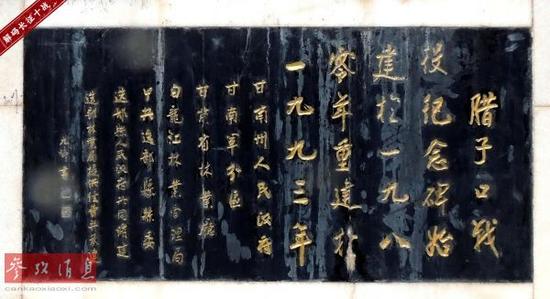 解码长征十战
腊子口战
役纪念碑始
建於一九八
零年重建於
一九九三年
甘南州人民政府
甘南军分区
甘肃省林業
白龍江林業管理局
中共迭部縣縣委
迭部縣人民政府共同修建
迭部林業局提供
参考消息
cankaoxiaoxi.com